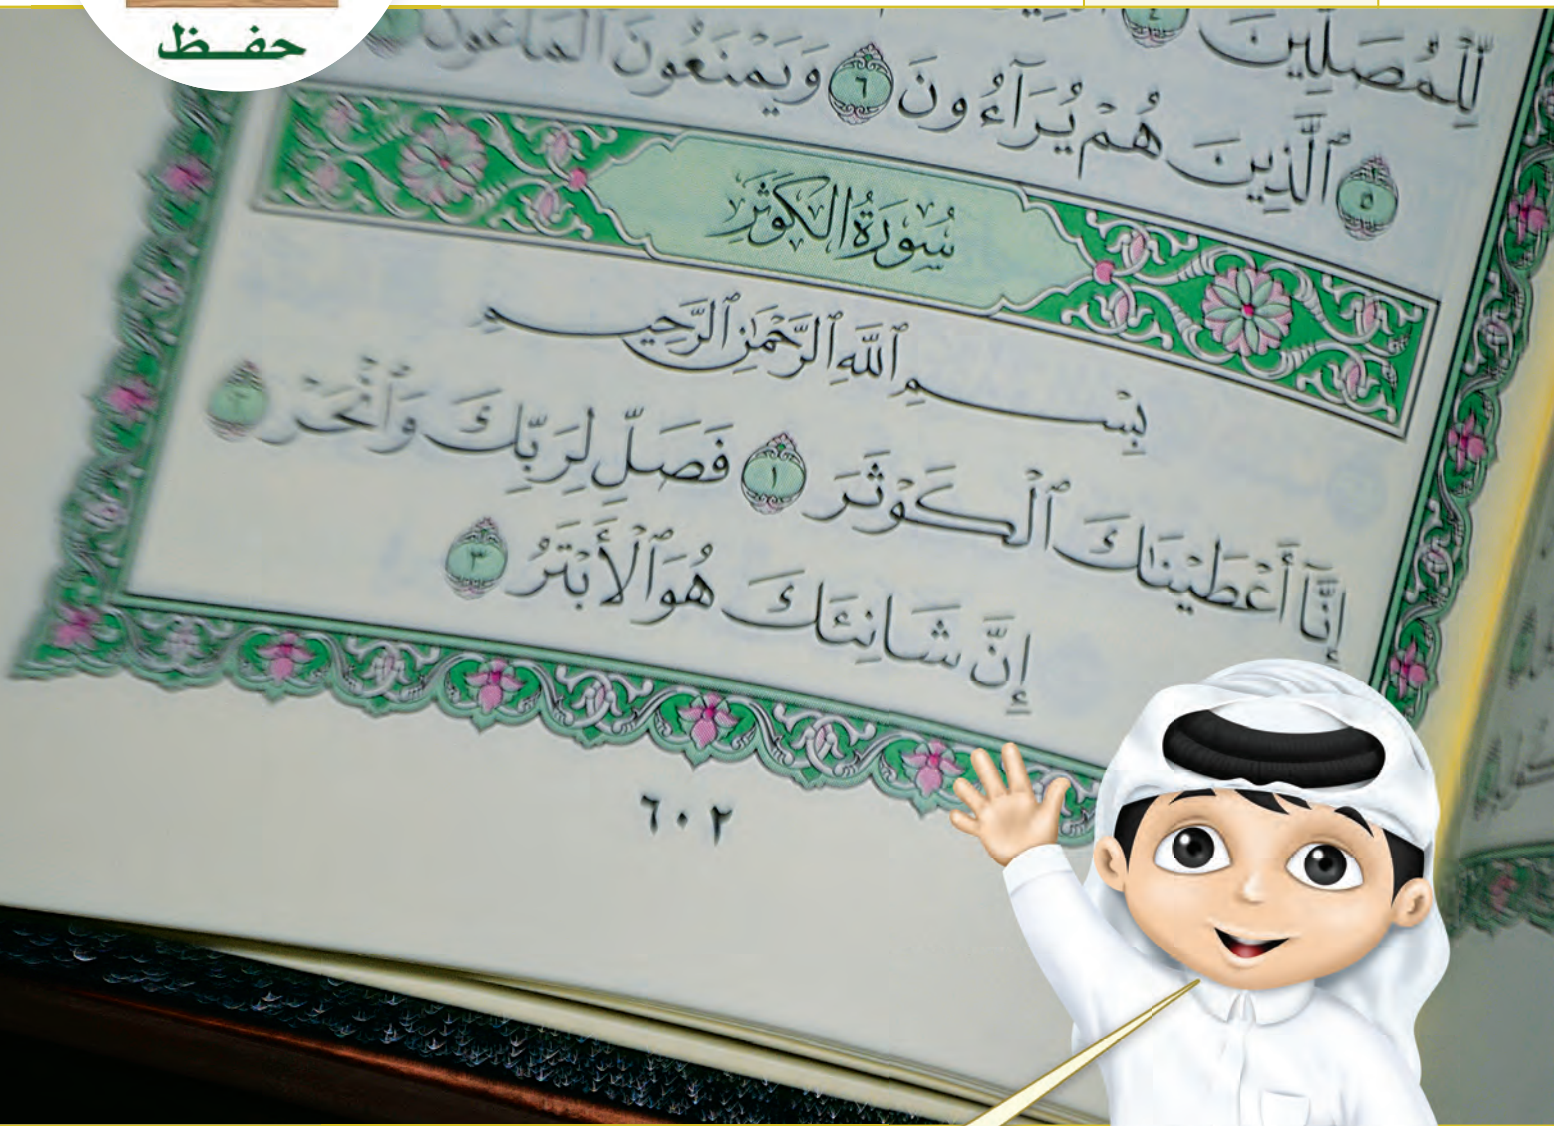 حفظ
لِّلْمُصَلِّينَ ٤
٥ ٱلَّذِينَ هُمْ يُرَآءُونَ ٦ وَيَمْنَعُونَ ٱلْمَاعُونَ
سُورَةُ الكَوْثَرِ
بِسْمِ ٱللَّهِ ٱلرَّحْمَٰنِ ٱلرَّحِيمِ
إِنَّآ أَعْطَيْنَٰكَ ٱلْكَوْثَرَ ١ فَصَلِّ لِرَبِّكَ وَٱنْحَرْ ٢
إِنَّ شَانِئَكَ هُوَ ٱلْأَبْتَرُ ٣
٦٠٢